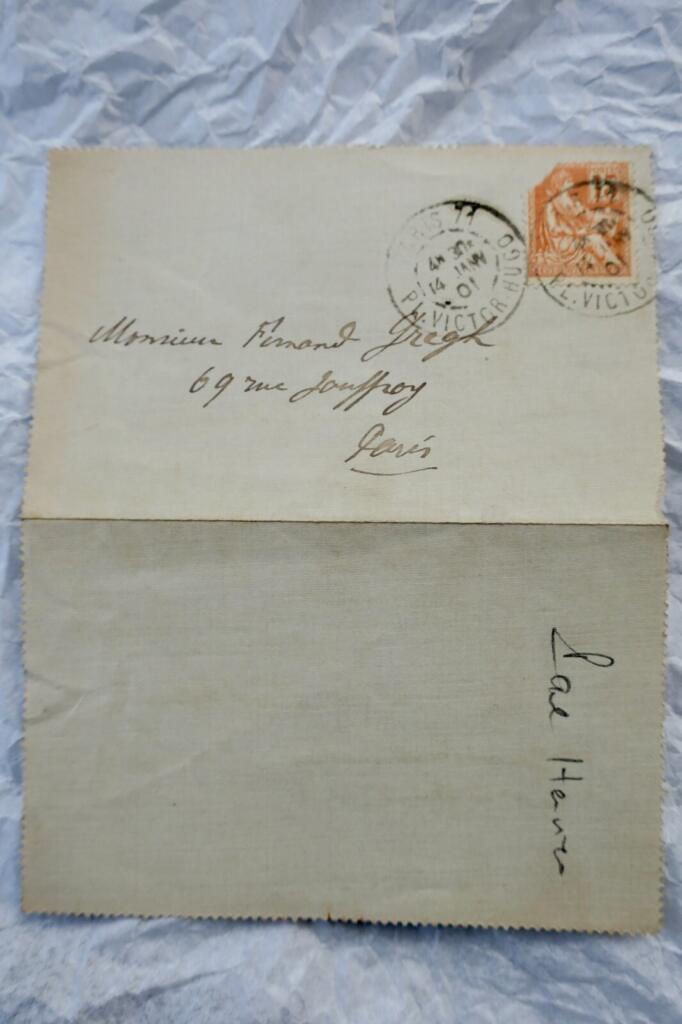 PARIS 71
4E 30M
14 JANV
01
PL. VICTOR HUGO
15
PL. VICTOR HUGO
Monsieur Fernand Gregh
69 rue Jouffroy
Paris